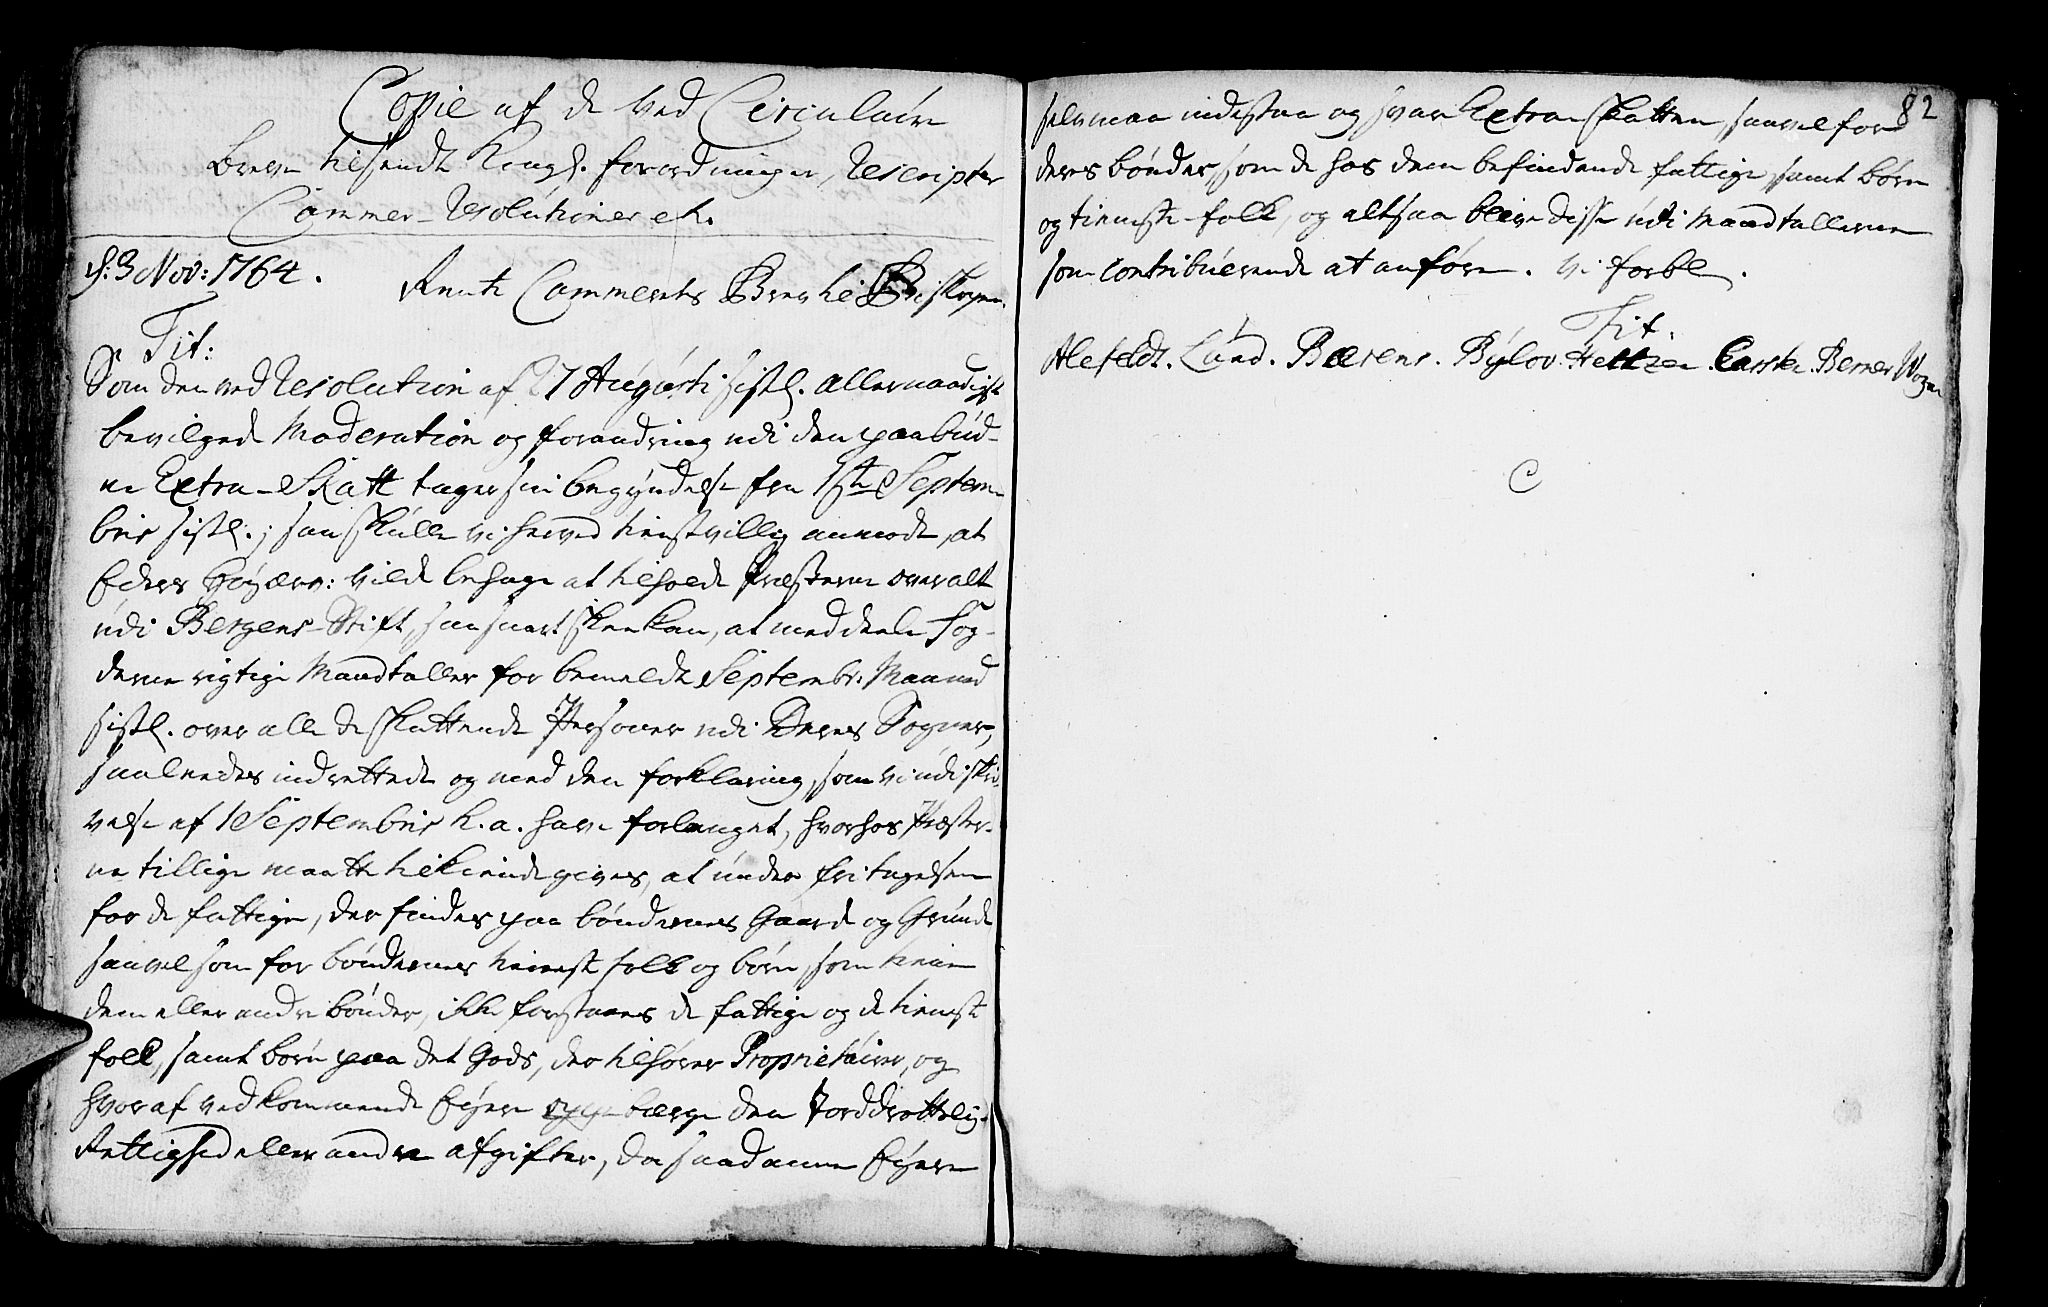 Copie af de ved Circulaire
breve tilsendte Kongl. forordninger, Rescripter
Cammer-Resolutioner etc.
d: 3 Nov: 1764.
Rente Cammerets Brev til Biskopen.
Tit:
Som den ved Resolution af 27 Augusti sistl. allernaadigst
bevilgede Moderation og forandring udi den paabud-
ne Extra-Skatt tager sin begyndelse fra 1ste Septem-
bris sistl.; saa skulle vi herved tienstvillig anmode, at
Eders Høyærv: vilde behage at tilholde Præsterne overalt
udi Bergens-Stift, saa snart skee kan, at meddeele Fog-
derne rigtige Mandtaller for bemeldte Septembr. Maaned
sistl. over alle de skattende Personer udi Deres Sogner,
saaleedes indrettede og med den forklaring, som vi udi skri-
velse af 1 Septembris h. a. have forlanget, hvorhos Præster-
ne tillige maatte tilkiende gives, at under fritagelsen
for de fattige, der findes paa bøndernes Gaarde og Grunde
saavel som for bøndernes tienest folk og børn, som tiene
dem eller andre bønder, ikke forstaaes de fattige og de tienest
folk, samt børn paa det Gods, der tilhører Proprietairer, og
hvoraf vedkommende Eyere oppebærge den Jorddrottelig-
Rettighed eller andre afgifter, da saadanne Eyere
82
selv maa indestaa og svare Extra-Skatten, saavel for
deres bønder, som de hos dem befindende fattige, samt børn
og tieneste-folk, og altsaa blive disse udi Mandtallerne
som contribuerende at anføre. Vi forbl.
Tit.
Alefeldt. Lund. Bærens. Bylov. Heltzen. Carsten. Berner Wogn